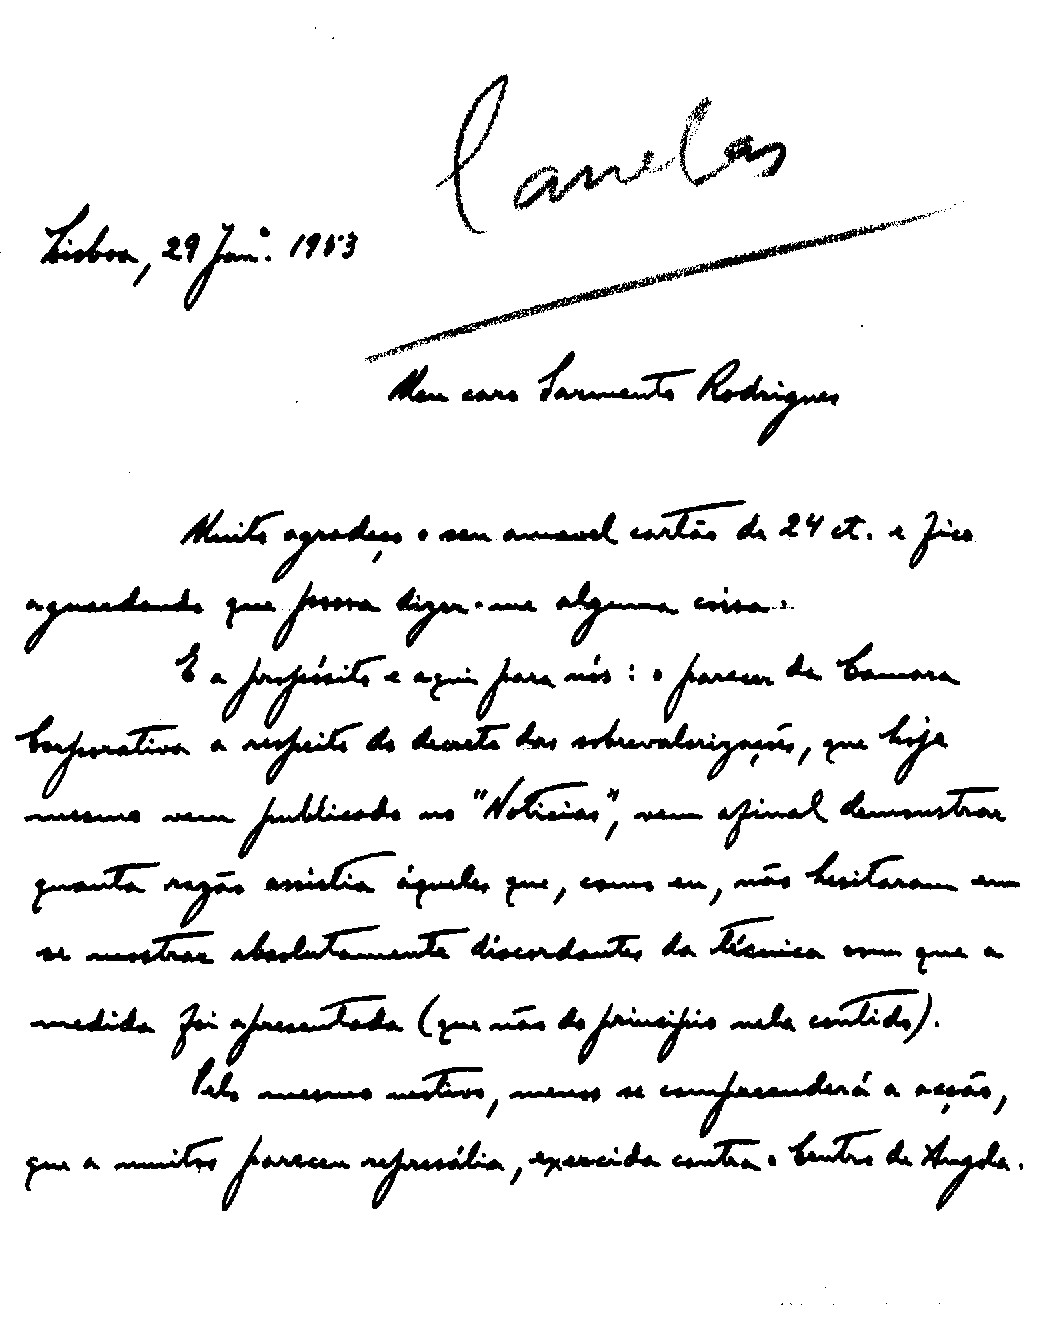 Canelas
Lisboa, 29 Janº. 1953
Meu caro Sarmento Rodrigues
Muito agradeço o seu amavel cartão de 24 ct. e fico
aguardando que possa dizer-me alguma coisa.
E a propósito e aqui para nós: o parecer da Camara
Corporativa a respeito do decreto das sobrevalorizações, que hoje
mesmo vem publicado no "Noticias", vem afinal demonstrar
quanta razão assistia áqueles que, como eu, não hesitaram em
se mostrar absolutamente discordantes da técnica com que a
medida foi apresentada (que não do principio nela contido).
Pelo mesmo motivo, menos se compreenderá a acção,
que a muitos pareceu represália, exercida contra o Centro de Angola.